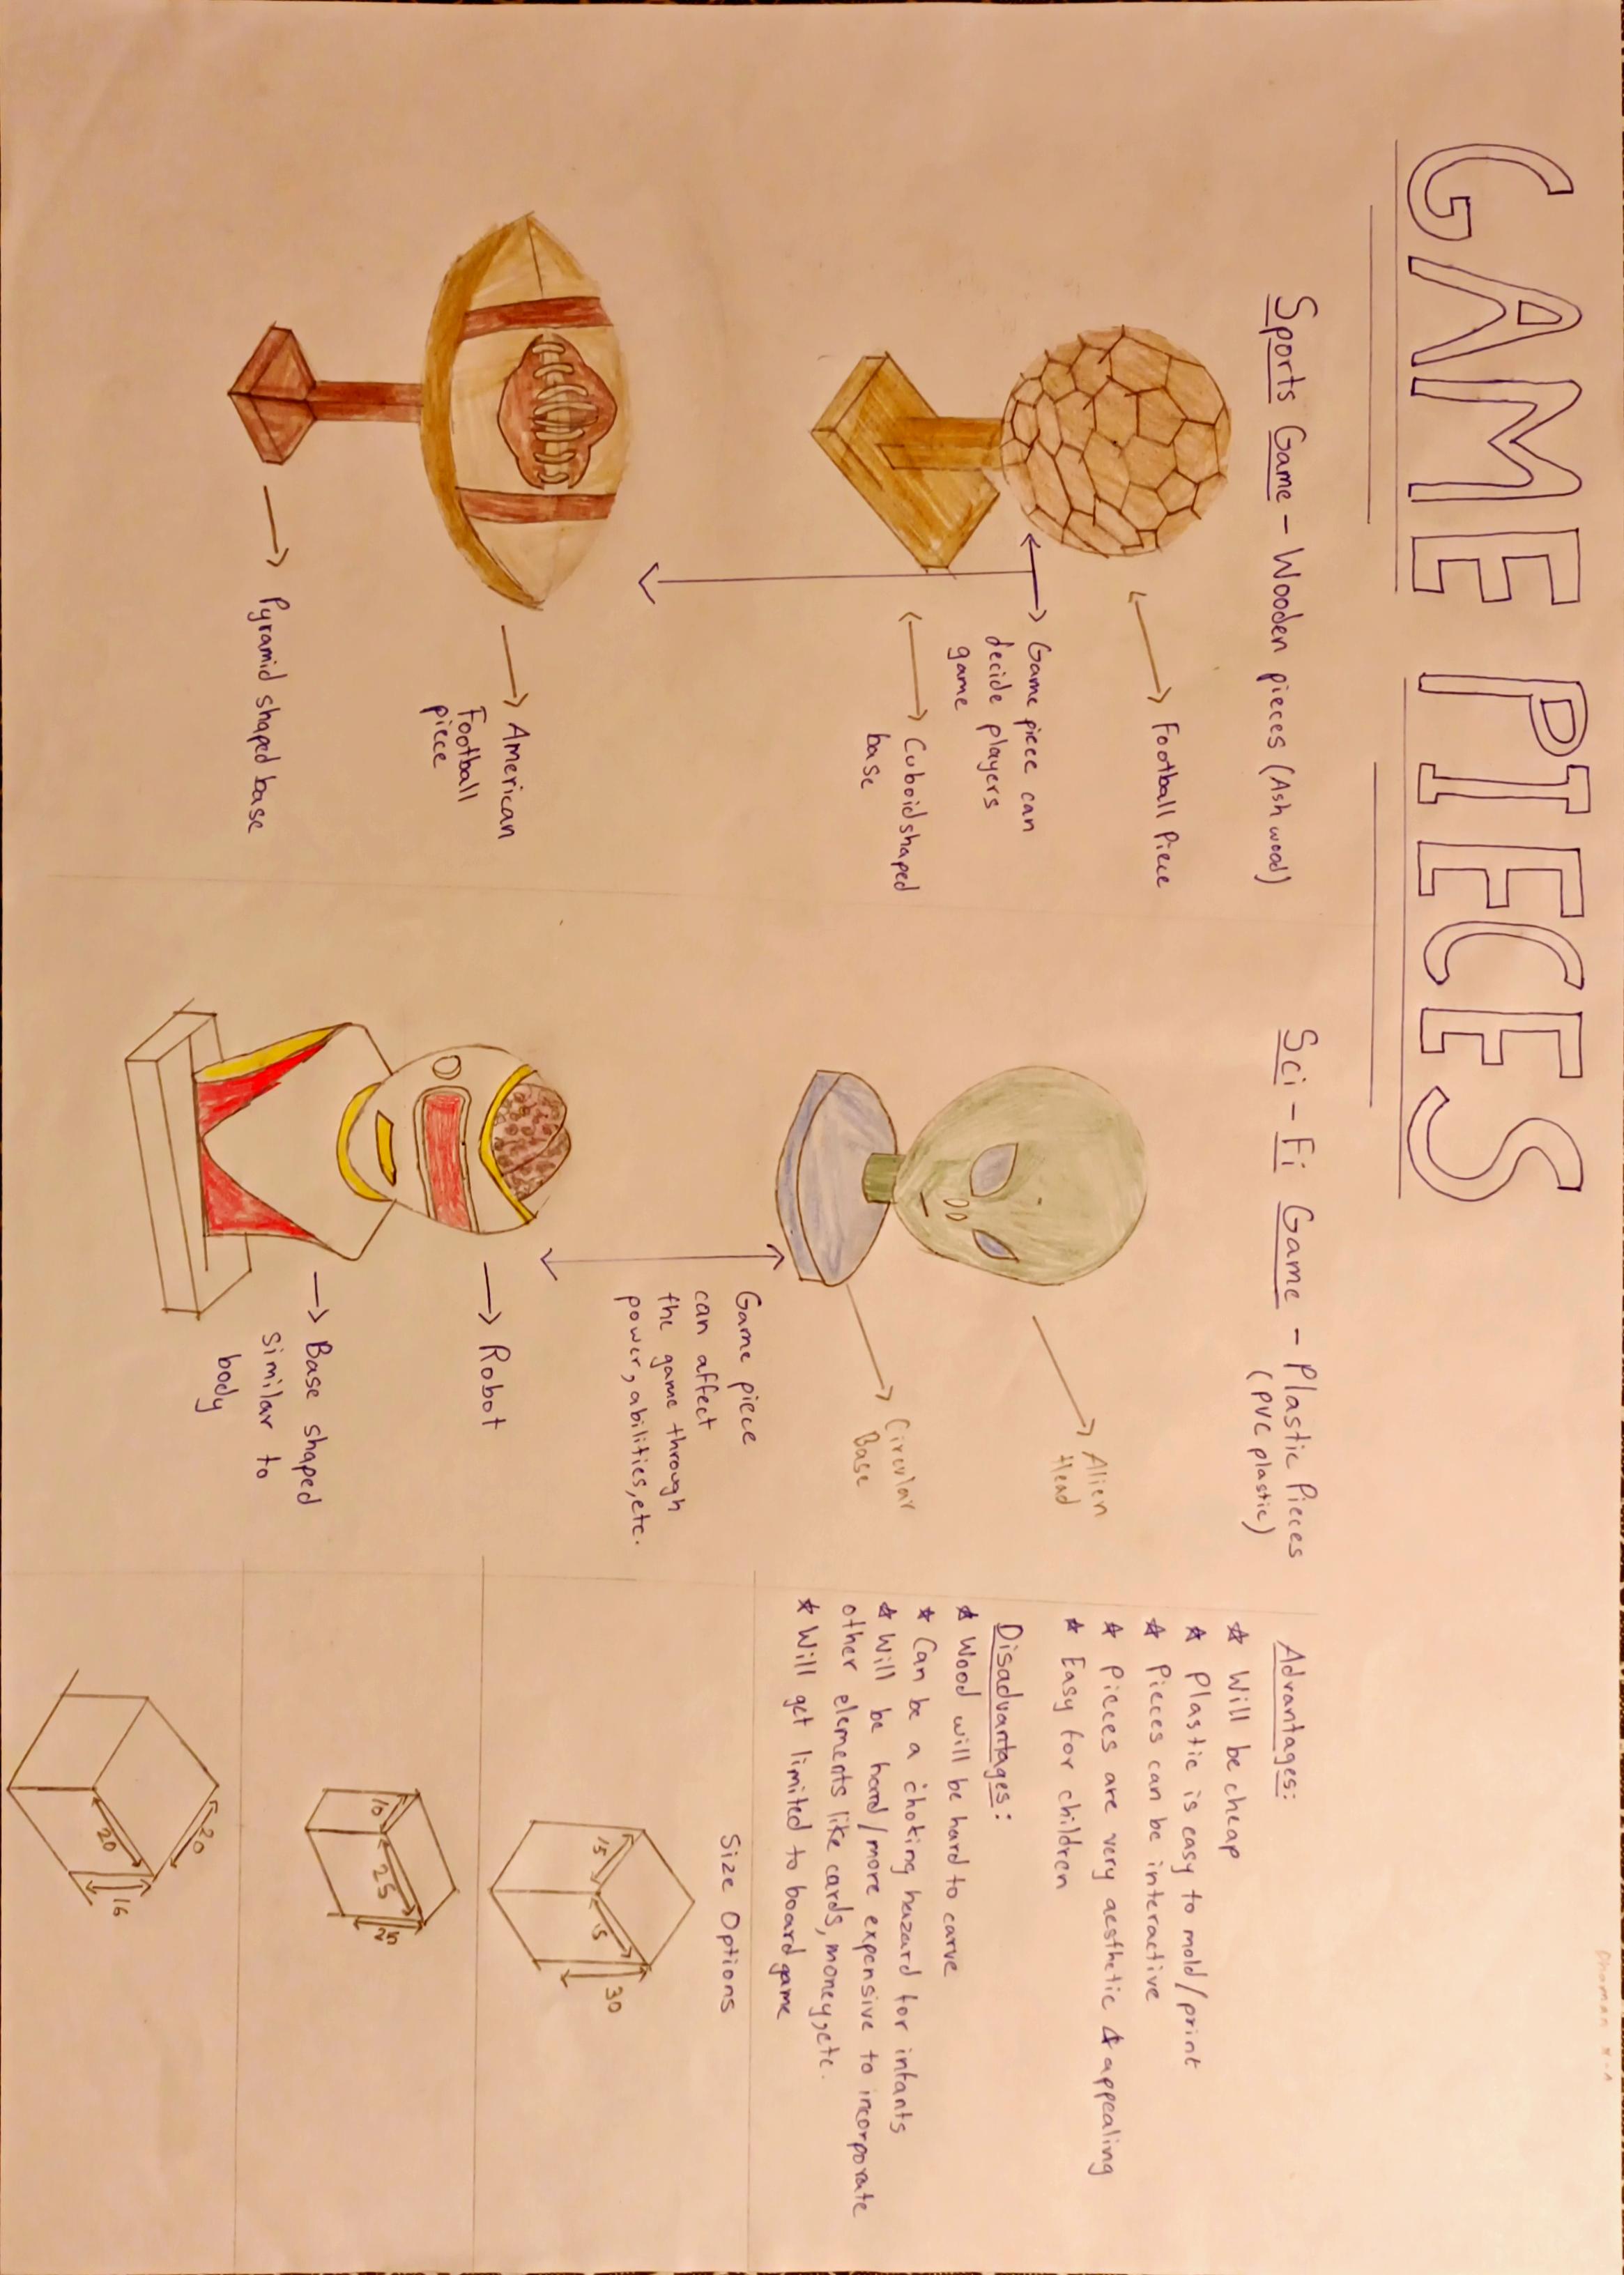 GAME PIECES
Sports Game - Wooden pieces (Ash wood)
Football Piece
Game piece can
decide players
game
Cuboid shaped
base
American
Football
piece
Pyramid shaped base
Sci - Fi Game - Plastic Pieces
(PVC plastic)
Alien
Head
Circular
Base
Game piece
can affect
the game through
power, abilities, etc.
Robot
Base shaped
similar to
body
Advantages:
* Will be cheap
* Plastic is easy to mold/print
* Pieces can be interactive
* Pieces are very aesthetic & appealing
* Easy for children
Disadvantages:
* Wood will be hard to carve
* Can be a choking hazard for infants
* Will be hard/more expensive to incorporate
other elements like cards, money, etc.
* Will get limited to board game
Size Options
15
15
30
10
25
20
20
16